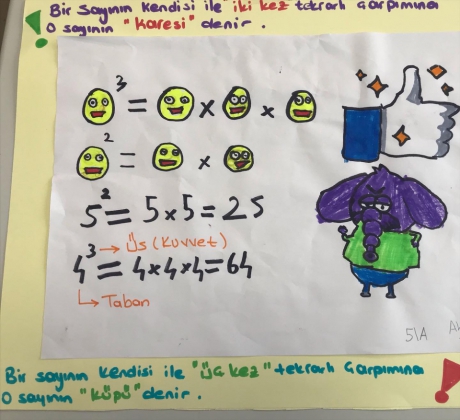 Bir sayının kendisi ile iki kez tekrarlı çarpımına
o sayının "karesi" denir.
3 = x x
2 = x
5² = 5x5 = 25
4³ → Üs (Kuvvet)
= 4x4x4=64
↳ Taban
5\A
Bir sayının kendisi ile "üç kez" tekrarlı çarpımına
o sayının "küpü" denir.